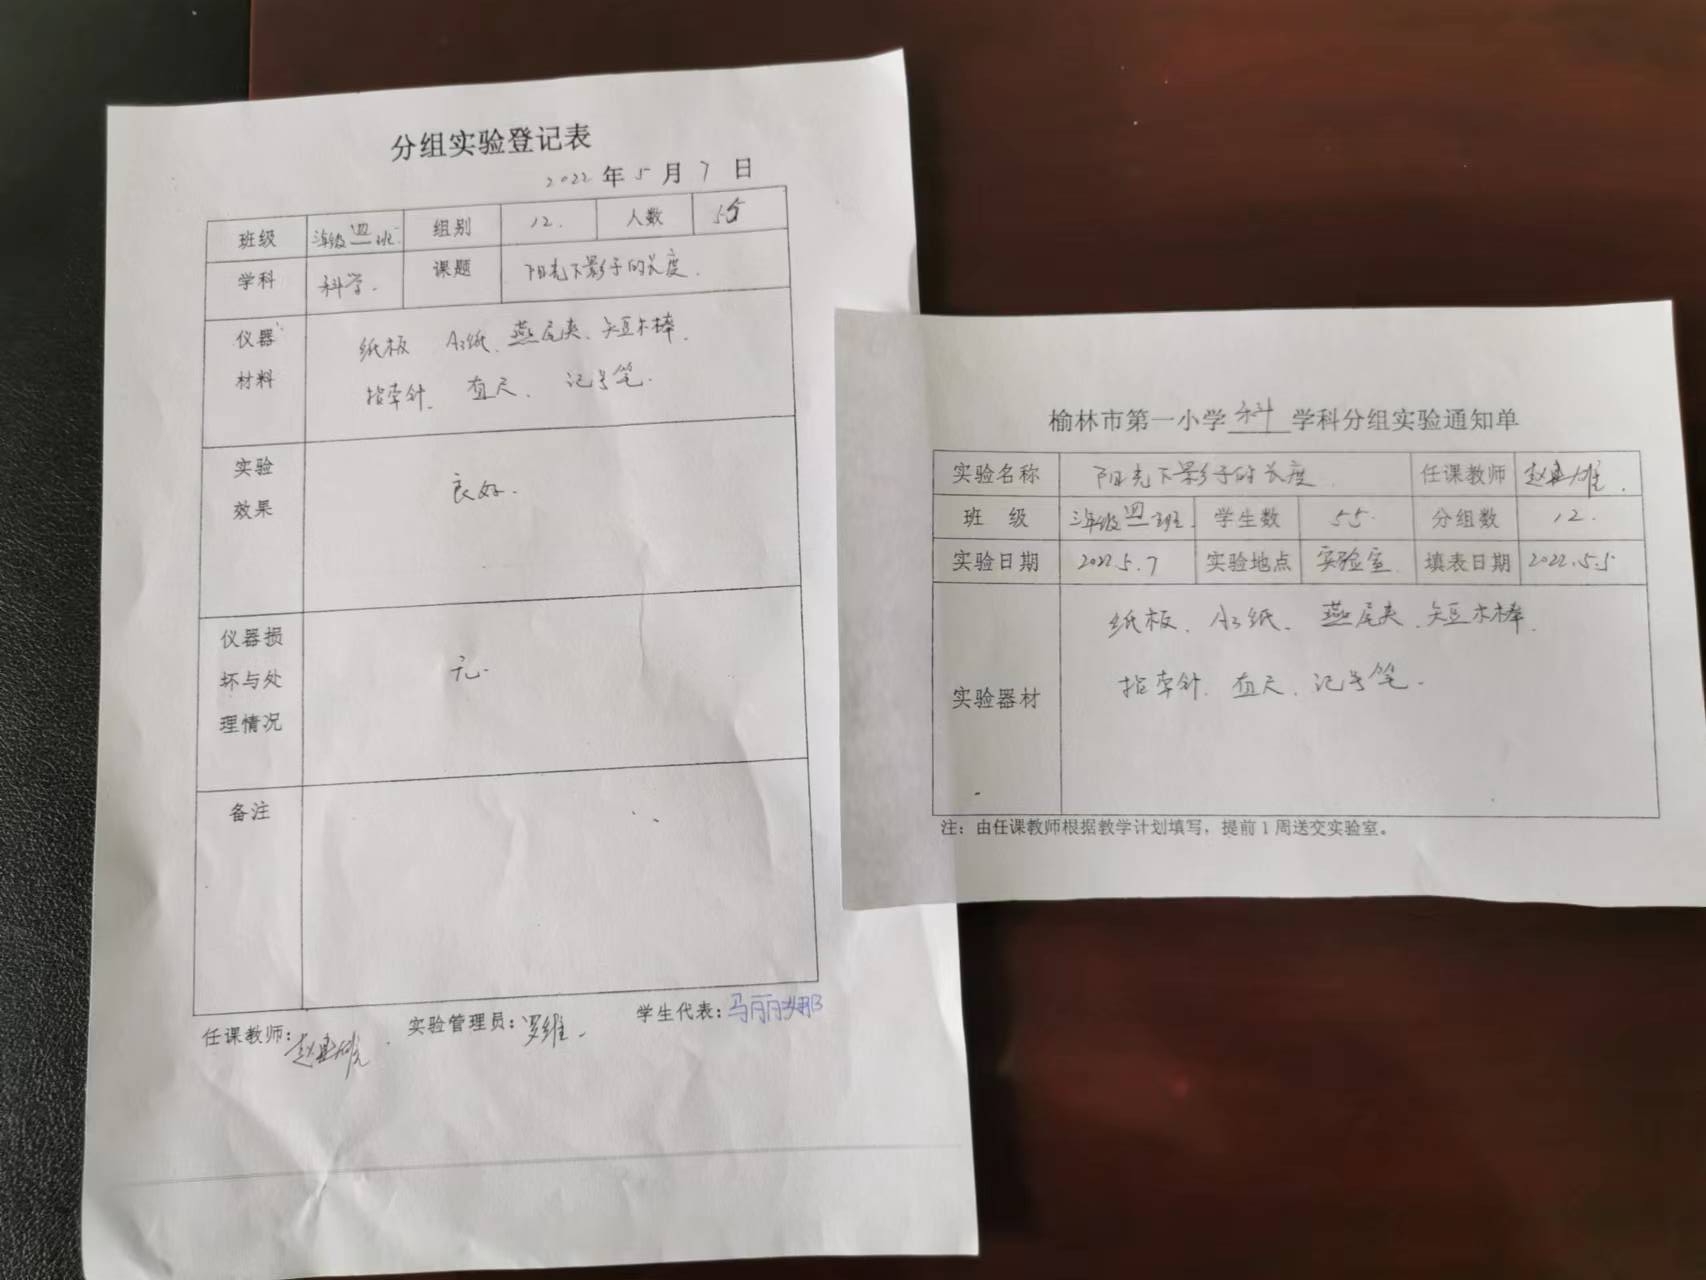 分组实验登记表
2022 年 5 月 7 日
班级 三年级四班 组别 12. 人数 55
学科 科学. 课题 阳光下影子的长度.
仪器材料 纸板 A3纸、燕尾夹、短木棒.
指南针. 直尺、记号笔.
实验效果 良好.
仪器损坏与处理情况 无.
备注
任课教师: 实验管理员: 罗维. 学生代表: 马丽娜
榆林市第一小学 科 学科分组实验通知单
实验名称 阳光下影子的长度. 任课教师
班 级 三年级四班. 学生数 55. 分组数 12.
实验日期 2022.5.7 实验地点 实验室. 填表日期 2022.5.5
纸板、A3纸、燕尾夹、短木棒.
实验器材 指南针. 直尺、记号笔.
注：由任课教师根据教学计划填写，提前 1 周送交实验室。